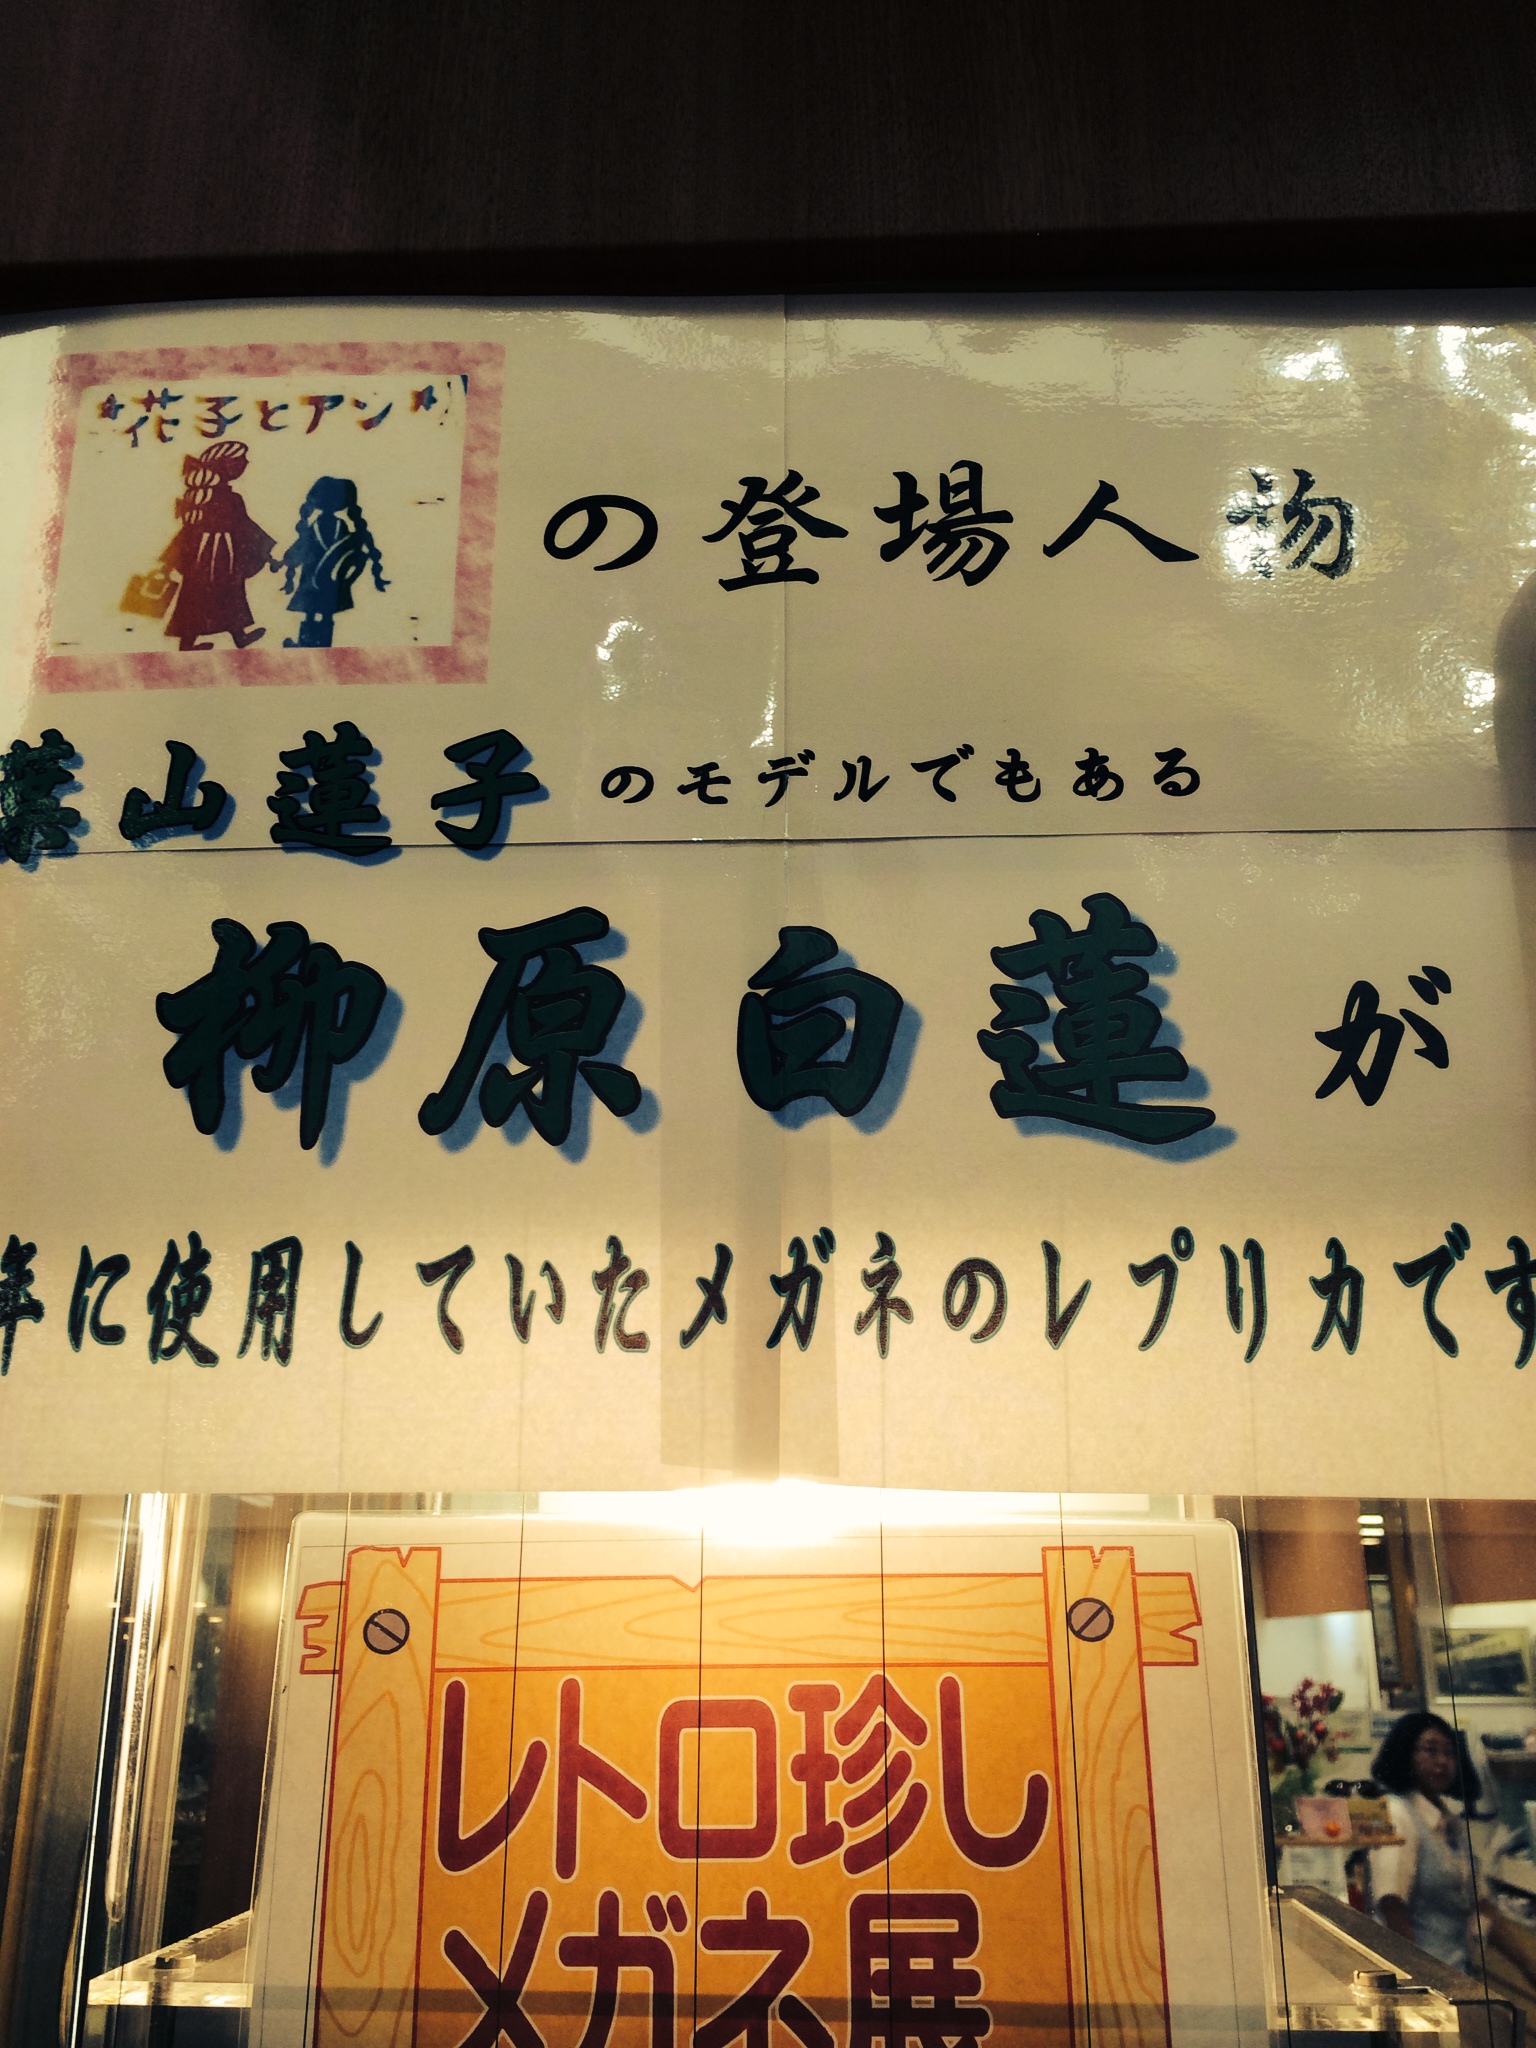 花子とアン
の登場人物
葉山蓮子のモデルでもある
柳原白蓮が
年に使用していたメガネのレプリカです
レトロ珍し
メガネ展